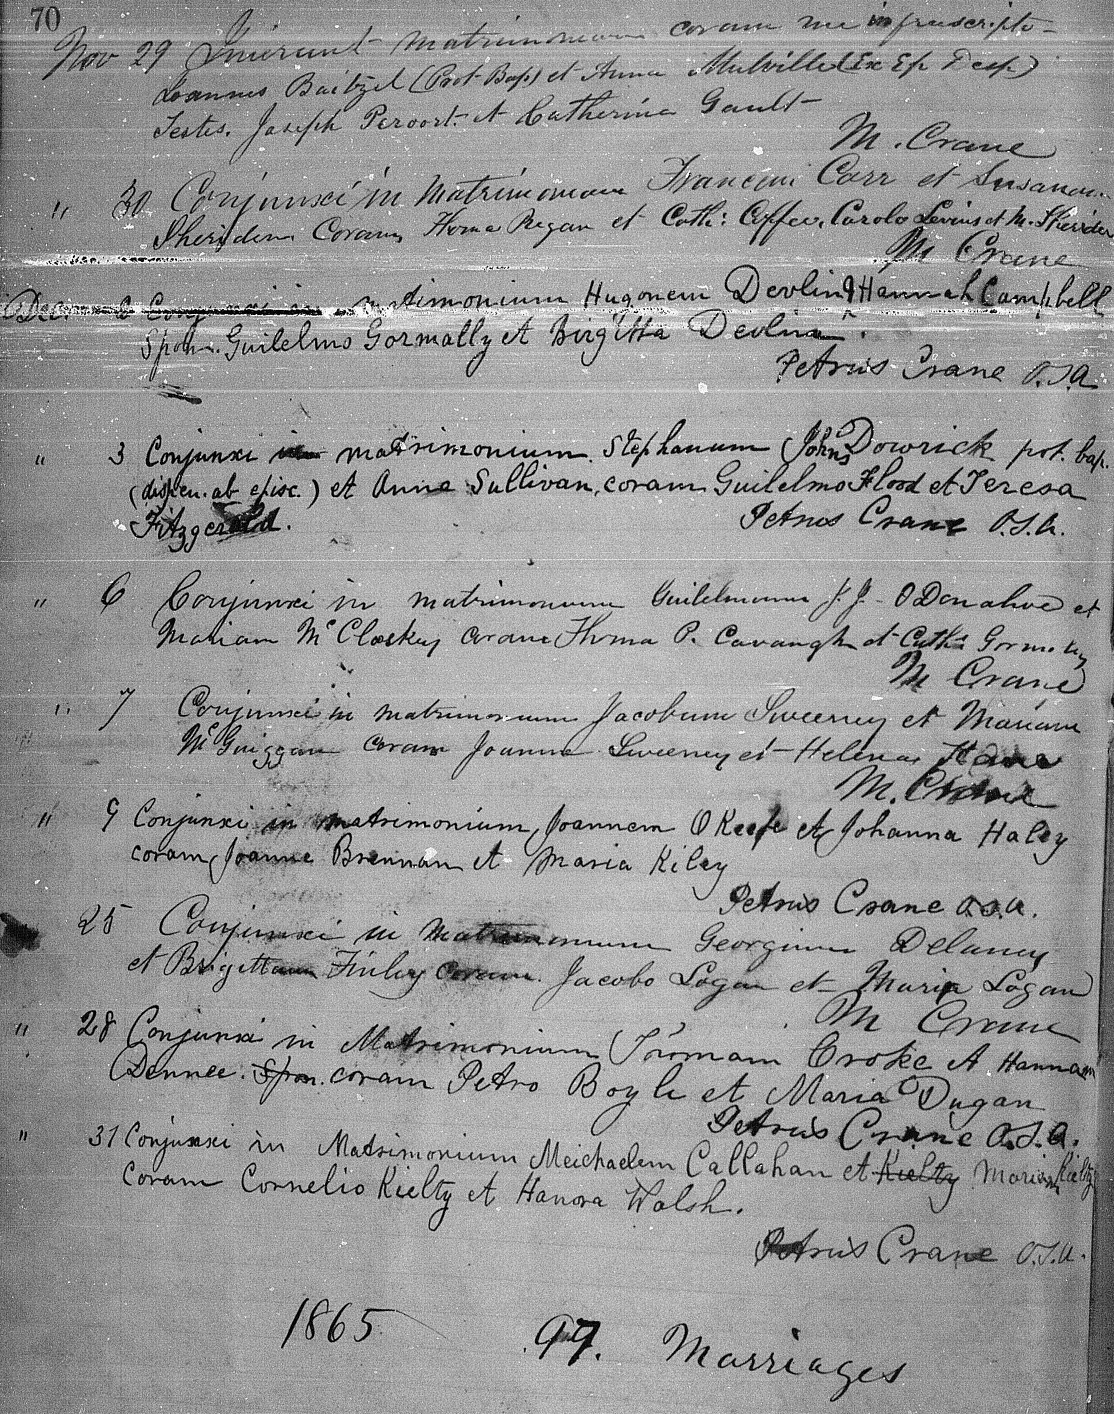 70
Nov 29 Inierunt matrimonium coram me infrascripto
Joannes Baitzel (Prot Bap) et Anna Mulville (Ex Ep Desp)
Testes. Joseph Peroort et Catherina Gault
M. Crane
" 30 Conjunxi in Matrimonium Carr et Susanam
Sheriden Coram Thoma Regan et Cath: Coffee, Carolo Levins et M. Sheriden
M Crane
Decem 2 Conjunxi in matrimonium Hugonem Devlin & Hannah Campbell
Spon. Guilelmo Gormally et Birgitta Devlin
Petrus Crane O.S.A
" 3 Conjunxi in matrimonium Stephanum (John) Dowrick pot. bap.
(dispen. ab episc.) et Anna Sullivan, coram Guilelmo Flood et Teresa
Fitzgerald.
Petrus Crane O.S.A.
" 6 Conjunxi in matrimonium Guilelmum J. J. O Donahoe et
Mariam McCloskey coram Thoma P. Cavangh et Cath:
M Crane
" 7 Conjunxi in matrimonium Jacobum Sweeney et Mariam
McGuiggan coram Joanne Sweeney et Helena
M. Crane
" 9 Conjunxi in matrimonium Joannem O Keefe et Johanna Haley
coram Joanne Brennan et Maria Kiley
Petrus Crane O.S.A.
25 Conjunxi in Matrimonium Georgium Delaney
et Brigittam Finley coram Jacobo Logan et Maria Logan
M Crane
" 28 Conjunxi in Matrimonium Croke et Hannam
Dennee. Spon. coram Petro Boyle et Maria Dugan
Petrus Crane O.S.A.
" 31 Conjunxi in Matrimonium Meichaelem Callahan et Kielty Mariam Kielty
Coram Cornelio Kielty et Hanora Walsh.
Petrus Crane O.S.A.
1865 97. Marriages